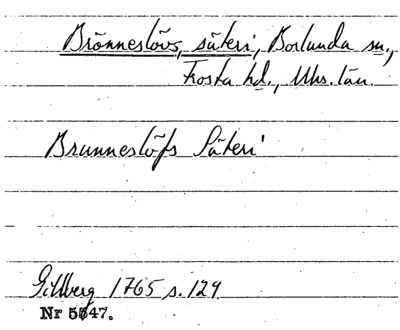 Brönneslövs, säteri, Borlunda sn.,
Frosta hd., Mhs. län.
Brunneslöfs Säteri
Gillberg 1765 s. 129
Nr 5647.